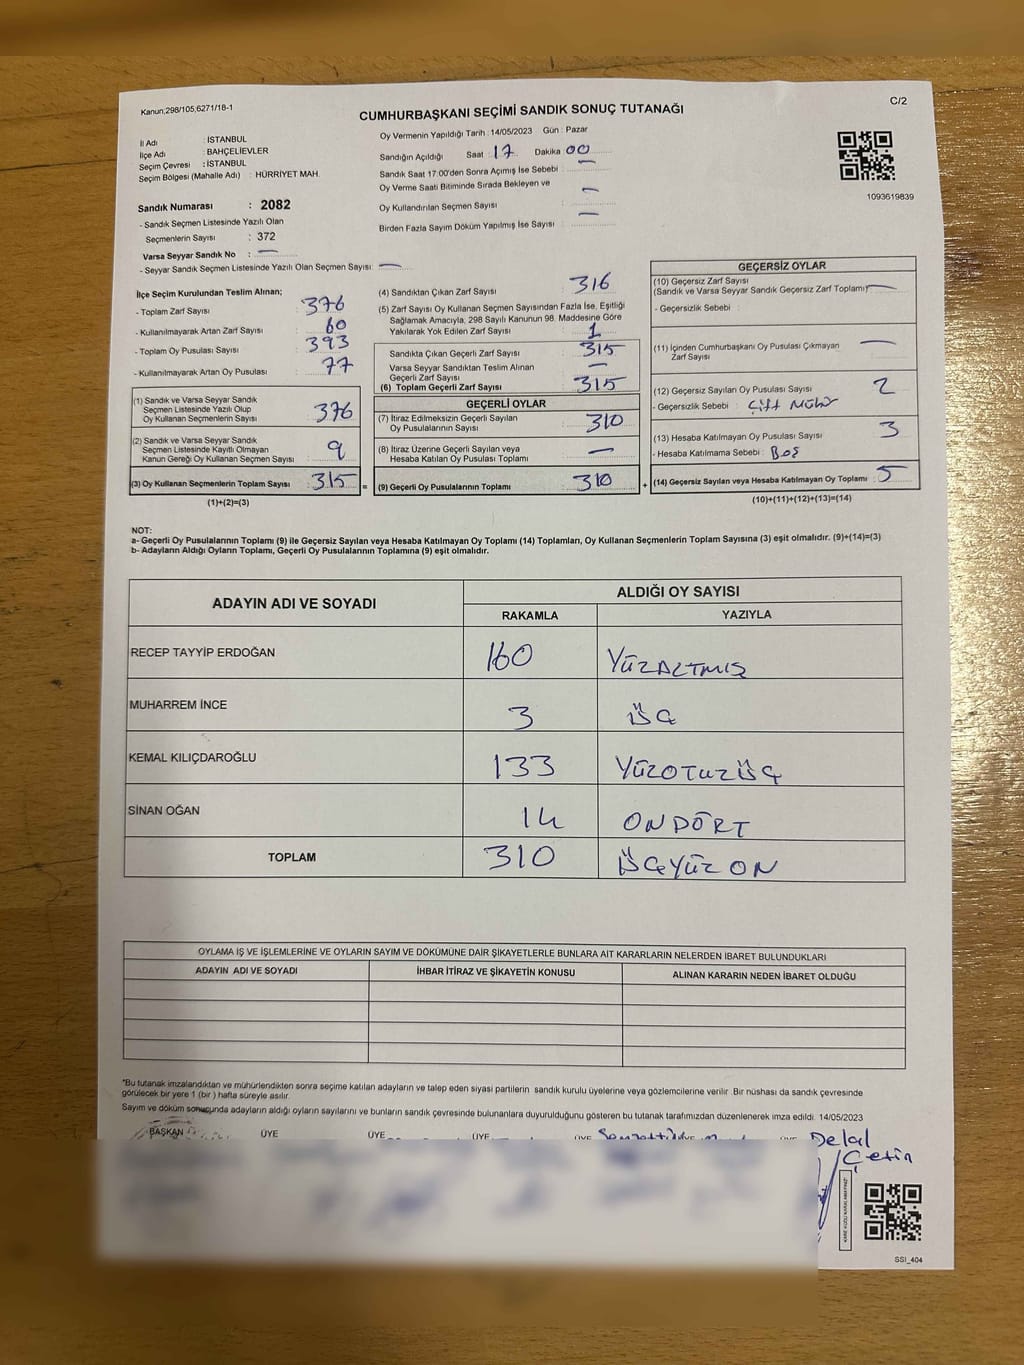 Kanun,298/105,6271/18-1
C/2
CUMHURBAŞKANI SEÇİMİ SANDIK SONUÇ TUTANAĞI
İl Adı : İSTANBUL
İlçe Adı : BAHÇELİEVLER
Seçim Çevresi : İSTANBUL
Seçim Bölgesi (Mahalle Adı) : HÜRRİYET MAH.
Oy Vermenin Yapıldığı Tarih : 14/05/2023 Gün : Pazar
Sandığın Açıldığı Saat : 17 Dakika : 00
Sandık Saat 17:00'den Sonra Açımış İse Sebebi : —
Oy Verme Saati Bitiminde Sırada Bekleyen ve
Oy Kullandırılan Seçmen Sayısı : —
Birden Fazla Sayım Döküm Yapılmış İse Sayısı : —
1093619839
Sandık Numarası : 2082
- Sandık Seçmen Listesinde Yazılı Olan
Seçmenlerin Sayısı : 372
Varsa Seyyar Sandık No : —
- Seyyar Sandık Seçmen Listesinde Yazılı Olan Seçmen Sayısı: —
İlçe Seçim Kurulundan Teslim Alınan;
- Toplam Zarf Sayısı : 376
- Kullanılmayarak Artan Zarf Sayısı : 60
- Toplam Oy Pusulası Sayısı : 393
- Kullanılmayarak Artan Oy Pusulası : 77
(1) Sandık ve Varsa Seyyar Sandık
Seçmen Listesinde Yazılı Olup
Oy Kullanan Seçmenlerin Sayısı : 376
(2) Sandık ve Varsa Seyyar Sandık
Seçmen Listesinde Kayıtlı Olmayan
Kanun Gereği Oy Kullanan Seçmen Sayısı : 9
(3) Oy Kullanan Seçmenlerin Toplam Sayısı : 315
(1)+(2)=(3)
(4) Sandıktan Çıkan Zarf Sayısı : 316
(5) Zarf Sayısı Oy Kullanan Seçmen Sayısından Fazla İse, Eşitliği
Sağlamak Amacıyla, 298 Sayılı Kanunun 98. Maddesine Göre
Yakılarak Yok Edilen Zarf Sayısı : 1
Sandıkta Çıkan Geçerli Zarf Sayısı : 315
Varsa Seyyar Sandıktan Teslim Alınan
Geçerli Zarf Sayısı : —
(6) Toplam Geçerli Zarf Sayısı : 315
GEÇERLİ OYLAR
(7) İtiraz Edilmeksizin Geçerli Sayılan
Oy Pusulalarının Sayısı : 310
(8) İtiraz Üzerine Geçerli Sayılan veya
Hesaba Katılan Oy Pusulası Toplamı : —
= (9) Geçerli Oy Pusulalarının Toplamı : 310
GEÇERSİZ OYLAR
(10) Geçersiz Zarf Sayısı
(Sandık ve Varsa Seyyar Sandık Geçersiz Zarf Toplamı) —
- Geçersizlik Sebebi :
(11) İçinden Cumhurbaşkanı Oy Pusulası Çıkmayan
Zarf Sayısı : —
(12) Geçersiz Sayılan Oy Pusulası Sayısı : 2
- Geçersizlik Sebebi : Çift Mühür
(13) Hesaba Katılmayan Oy Pusulası Sayısı : 3
- Hesaba Katılmama Sebebi : Boş
+ (14) Geçersiz Sayılan veya Hesaba Katılmayan Oy Toplamı : 5
(10)+(11)+(12)+(13)=(14)
NOT:
a- Geçerli Oy Pusulalarının Toplamı (9) ile Geçersiz Sayılan veya Hesaba Katılmayan Oy Toplamı (14) Toplamları, Oy Kullanan Seçmenlerin Toplam Sayısına (3) eşit olmalıdır. (9)+(14)=(3)
b- Adayların Aldığı Oyların Toplamı, Geçerli Oy Pusulalarının Toplamına (9) eşit olmalıdır.
ADAYIN ADI VE SOYADI
ALDIĞI OY SAYISI
RAKAMLA YAZIYLA
RECEP TAYYİP ERDOĞAN 160 YÜZALTMIŞ
MUHARREM İNCE 3 ÜÇ
KEMAL KILIÇDAROĞLU 133 YÜZOTUZÜÇ
SİNAN OĞAN 14 ONDÖRT
TOPLAM 310 ÜÇYÜZ ON
OYLAMA İŞ VE İŞLEMLERİNE VE OYLARIN SAYIM VE DÖKÜMÜNE DAİR ŞİKAYETLERLE BUNLARA AİT KARARLARIN NELERDEN İBARET BULUNDUKLARI
ADAYIN ADI VE SOYADI İHBAR İTİRAZ VE ŞİKAYETİN KONUSU ALINAN KARARIN NEDEN İBARET OLDUĞU
*Bu tutanak imzalandıktan ve mühürlendikten sonra seçime katılan adayların ve talep eden siyasi partilerin sandık kurulu üyelerine veya gözlemcilerine verilir. Bir nüshası da sandık çevresinde
görülecek bir yere 1 (bir) hafta süreyle asılır.
Sayım ve döküm sonucunda adayların aldığı oyların sayılarını ve bunların sandık çevresinde bulunanlara duyurulduğunu gösteren bu tutanak tarafımızdan düzenlenerek imza edildi. 14/05/2023
BAŞKAN ÜYE ÜYE ÜYE ÜYE
Delal
Çetin
SSI_404